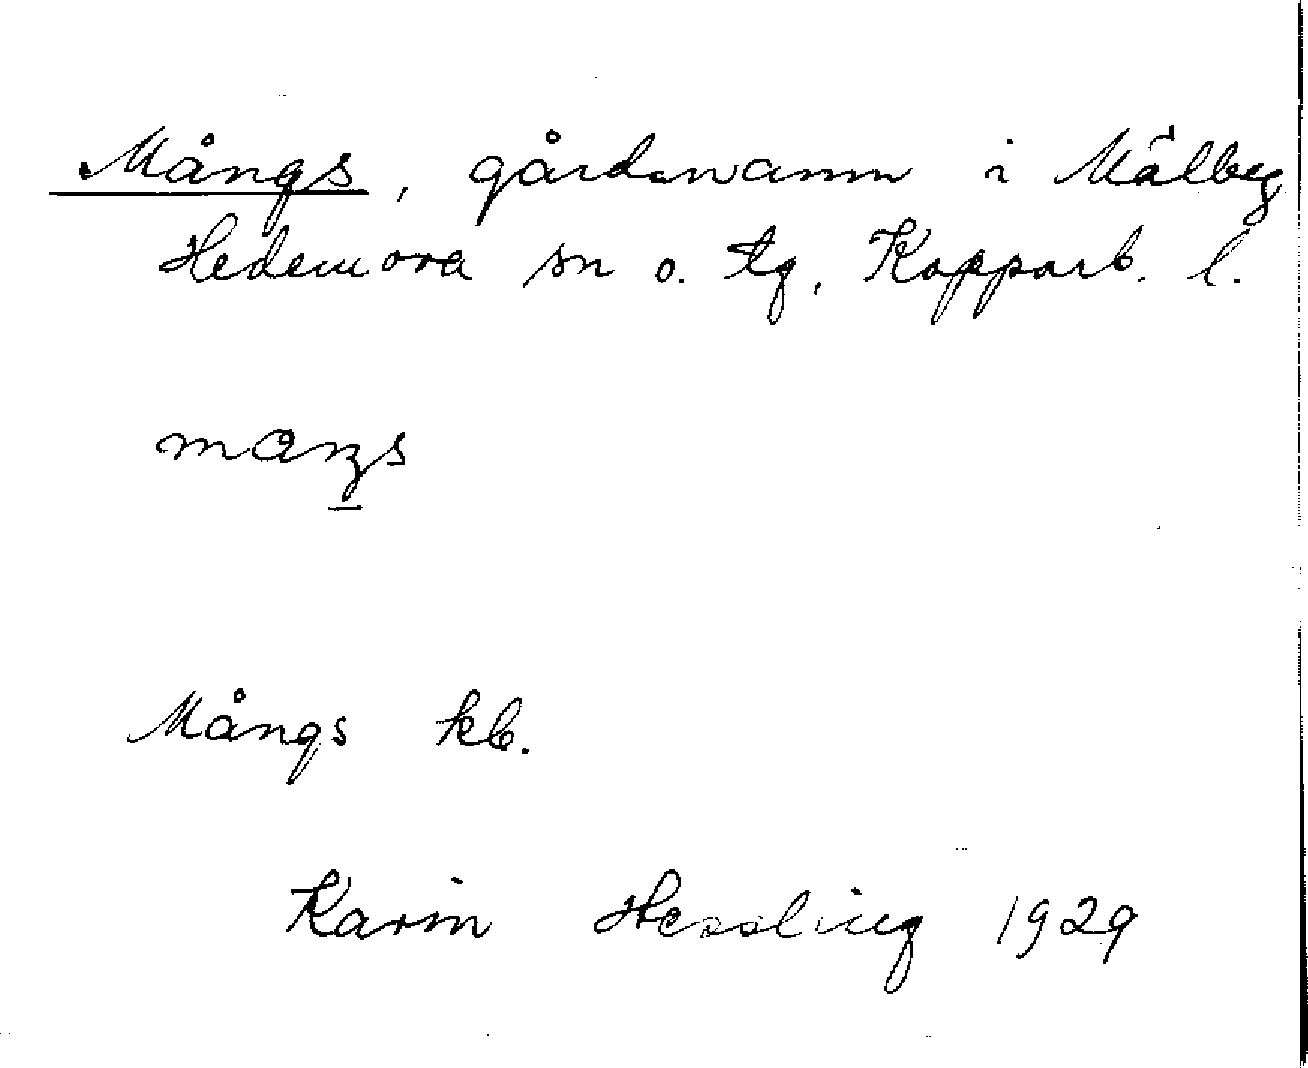 Mångs, gårdsnamn i Målbeg
Hedemora sn o. tg, Kopparb. l.
maŋs
Mångs kb.
Karin Hessling 1929